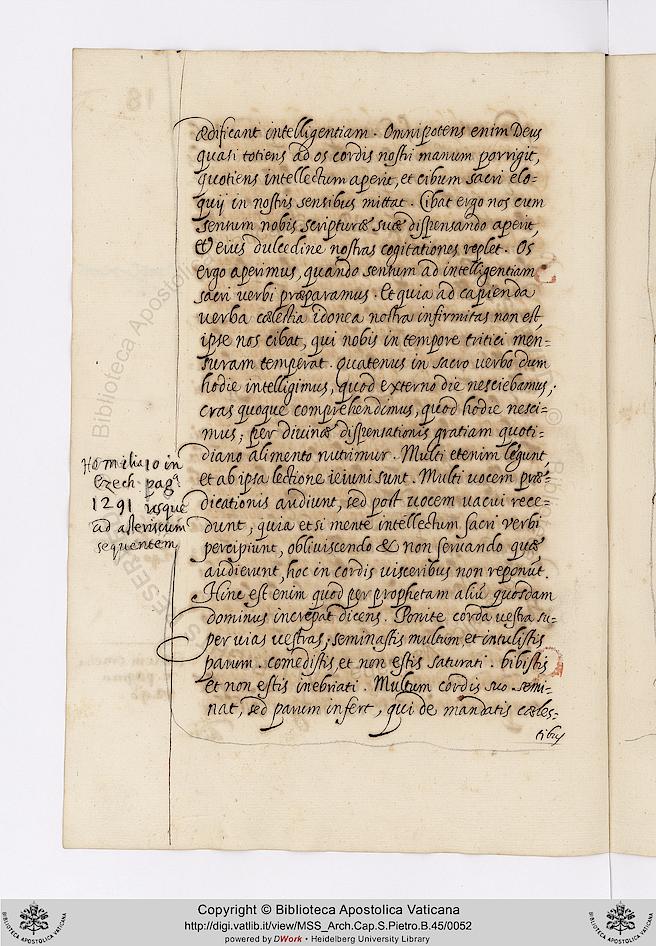 ædificant intelligentiam. Omnipotens enim Deus
quasi totiens ad os cordis nostri manum porrigit,
quotiens intellectum aperit, et cibum sacri elo-
quij in nostris sensibus mittat. Cibat ergo nos cum
sensum nobis scripturæ suæ dispensando aperit,
et eius dulcedine nostras cogitationes replet. Os
ergo aperimus, quando sensum ad intelligentiam
sacri verbi præparamus. Et quia ad capienda
verba cælestia idonea nostra infirmitas non est,
ipse nos cibat, qui nobis in tempore tritici men-
suram temperat. quatenus in sacro verbo dum
hodie intelligimus, quod externo die nesciebamus,
cras quoque comprehendimus, quod hodie nesci-
mus; per divinæ dispensationis gratiam quoti-
diano alimento nutrimur. Multi etenim legunt,
et ab ipsa lectione ieiuni sunt. Multi vocem præ-
dicationis audiunt, sed post vocem vacui rece-
dunt, quia etsi mente intellectum sacri verbi
percipiunt, obliviscendo & non servando quæ
audierunt, hoc in cordis visceribus non reponunt.
Hinc est enim quod per prophetam aliũ quosdam
dominus increpat dicens. Ponite corda vestra su-
per vias vestras; seminastis multum et intulistis
parum. comedistis et non estis saturati. bibistis
et non estis inebriati. Multum cordis suo semi-
nat, sed parum infert, qui de mandatis cæles-
tibus
Homilia 10 in
Ezech. pag.
1291 usque
ad asteriscum
sequentem
18
Copyright © Biblioteca Apostolica Vaticana
http://digi.vatlib.it/view/MSS_Arch.Cap.S.Pietro.B.45/0052
powered by DWork • Heidelberg University Library
BIBLIOTECA APOSTOLICA VATICANA
BIBLIOTECA APOSTOLICA VATICANA